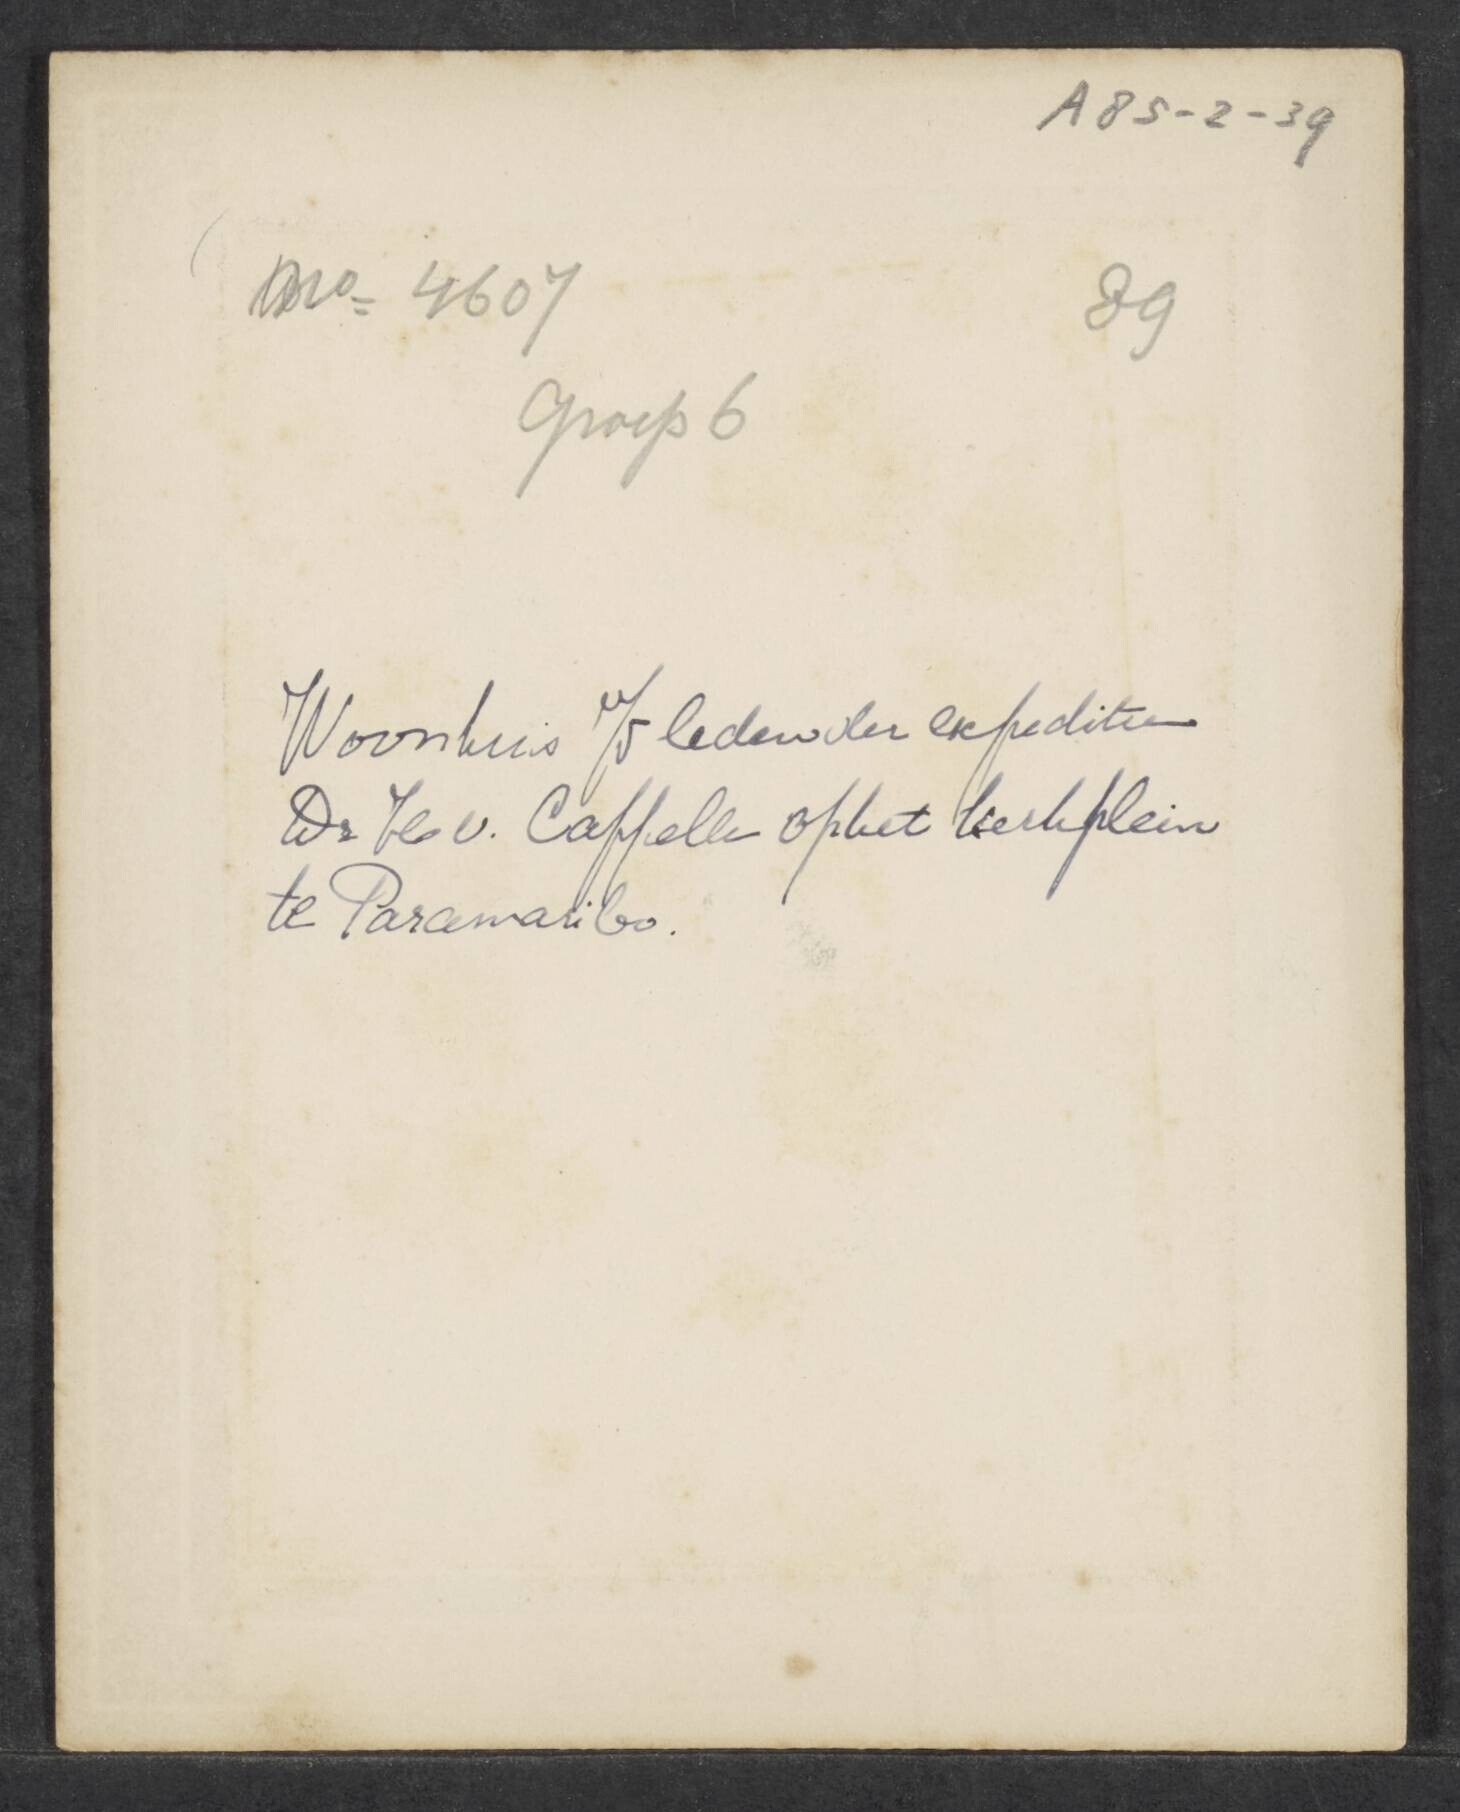 A85-2-39
No= 4607 39
Groep 6
Woonhuis v/d leden der expeditie
Dr H v. Cappelle op het kerkplein
te Paramaribo.